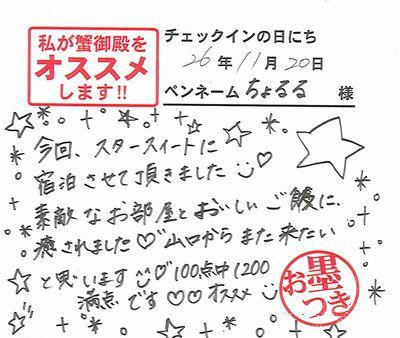 私が蟹御殿を
オススメ
します!!
チェックインの日にち
26年11月20日
ペンネーム ちょるる 様
今回、スタースイートに
宿泊させて頂きました
素敵なお部屋とおいしいご飯に、
癒されました♡山口からまた来たい
と思います♡100点中1200
満点です♡♡オススメ
お墨つき